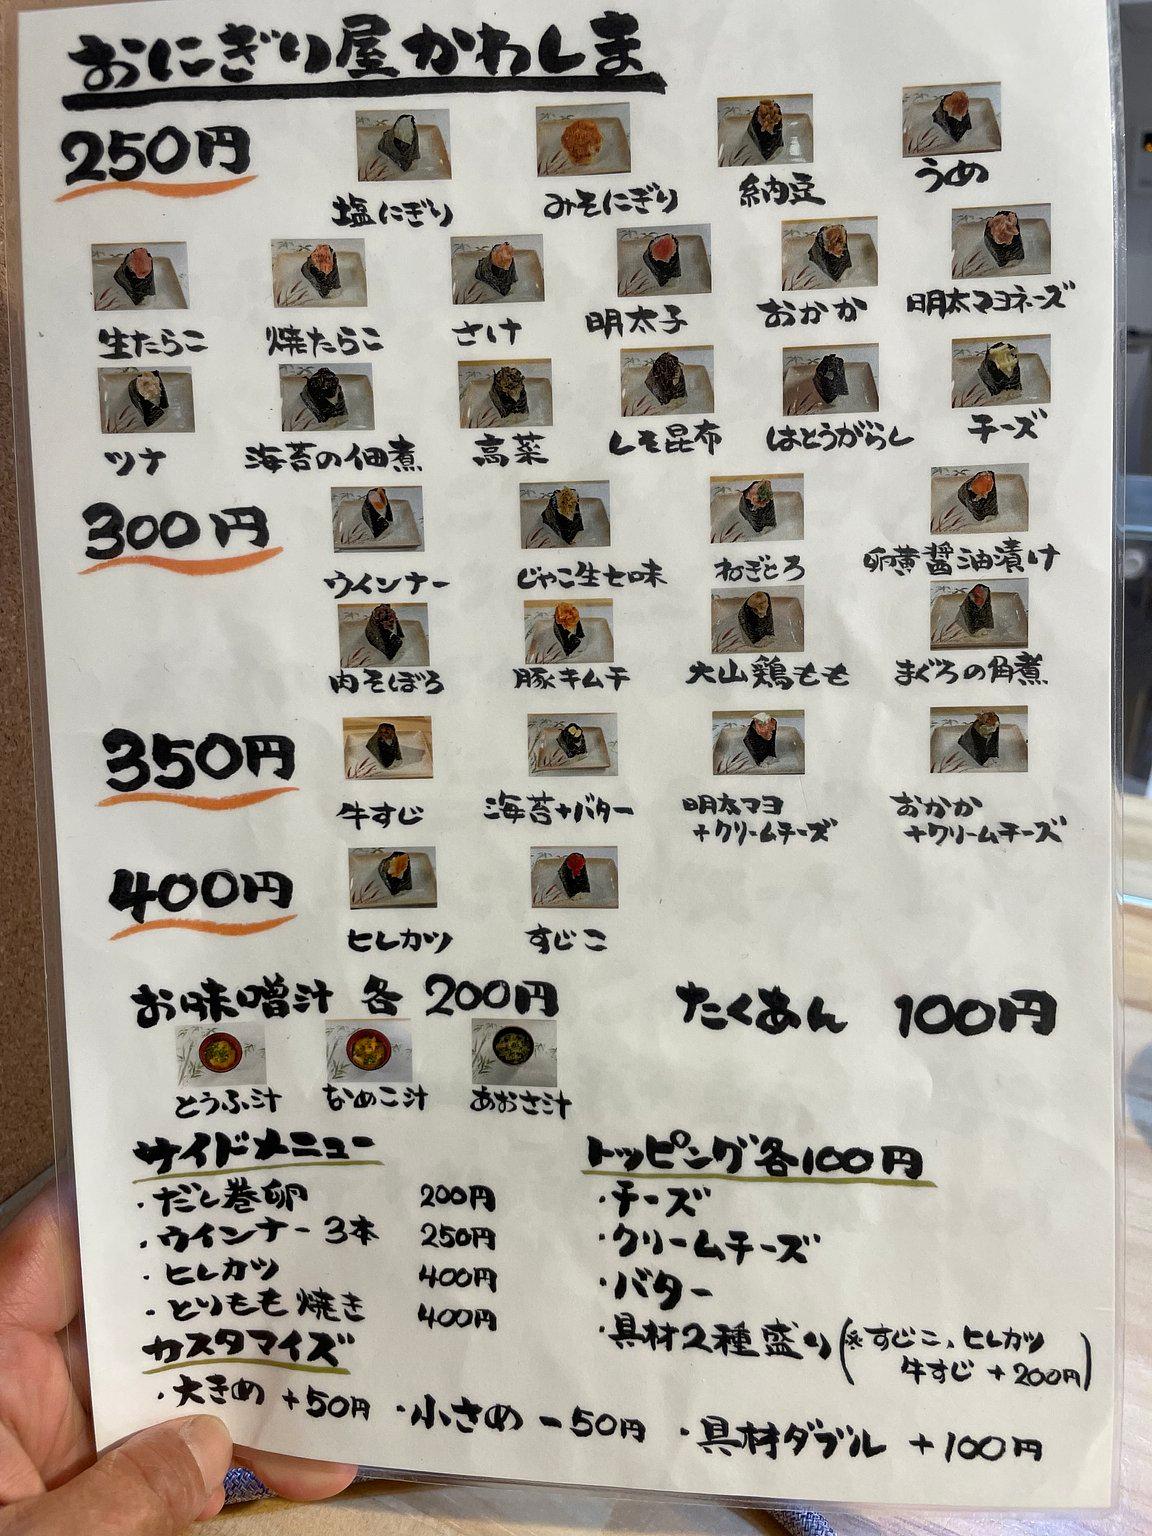 おにぎり屋かわしま
250円
塩にぎり みそにぎり 納豆 うめ
生たらこ 焼たらこ さけ 明太子 おかか 明太マヨネーズ
ツナ 海苔の佃煮 高菜 しそ昆布 はとうがらし チーズ
300円
ウインナー じゃこ生七味 ねぎとろ 卵黄醤油漬け
肉そぼろ 豚キムチ 大山鶏もも まぐろの角煮
350円
牛すじ 海苔+バター 明太マヨ おかか
+クリームチーズ +クリームチーズ
400円
ヒレカツ すじこ
お味噌汁 各 200円 たくあん 100円
とうふ汁 なめこ汁 あおさ汁
サイドメニュー
・だし巻卵 200円
・ウインナー3本 250円
・ヒレカツ 400円
・とりもも焼き 400円
トッピング各100円
・チーズ
・クリームチーズ
・バター
・具材2種盛り(※すじこ、ヒレカツ
牛すじ +200円)
カスタマイズ
・大きめ +50円 ・小さめ -50円 ・具材ダブル +100円